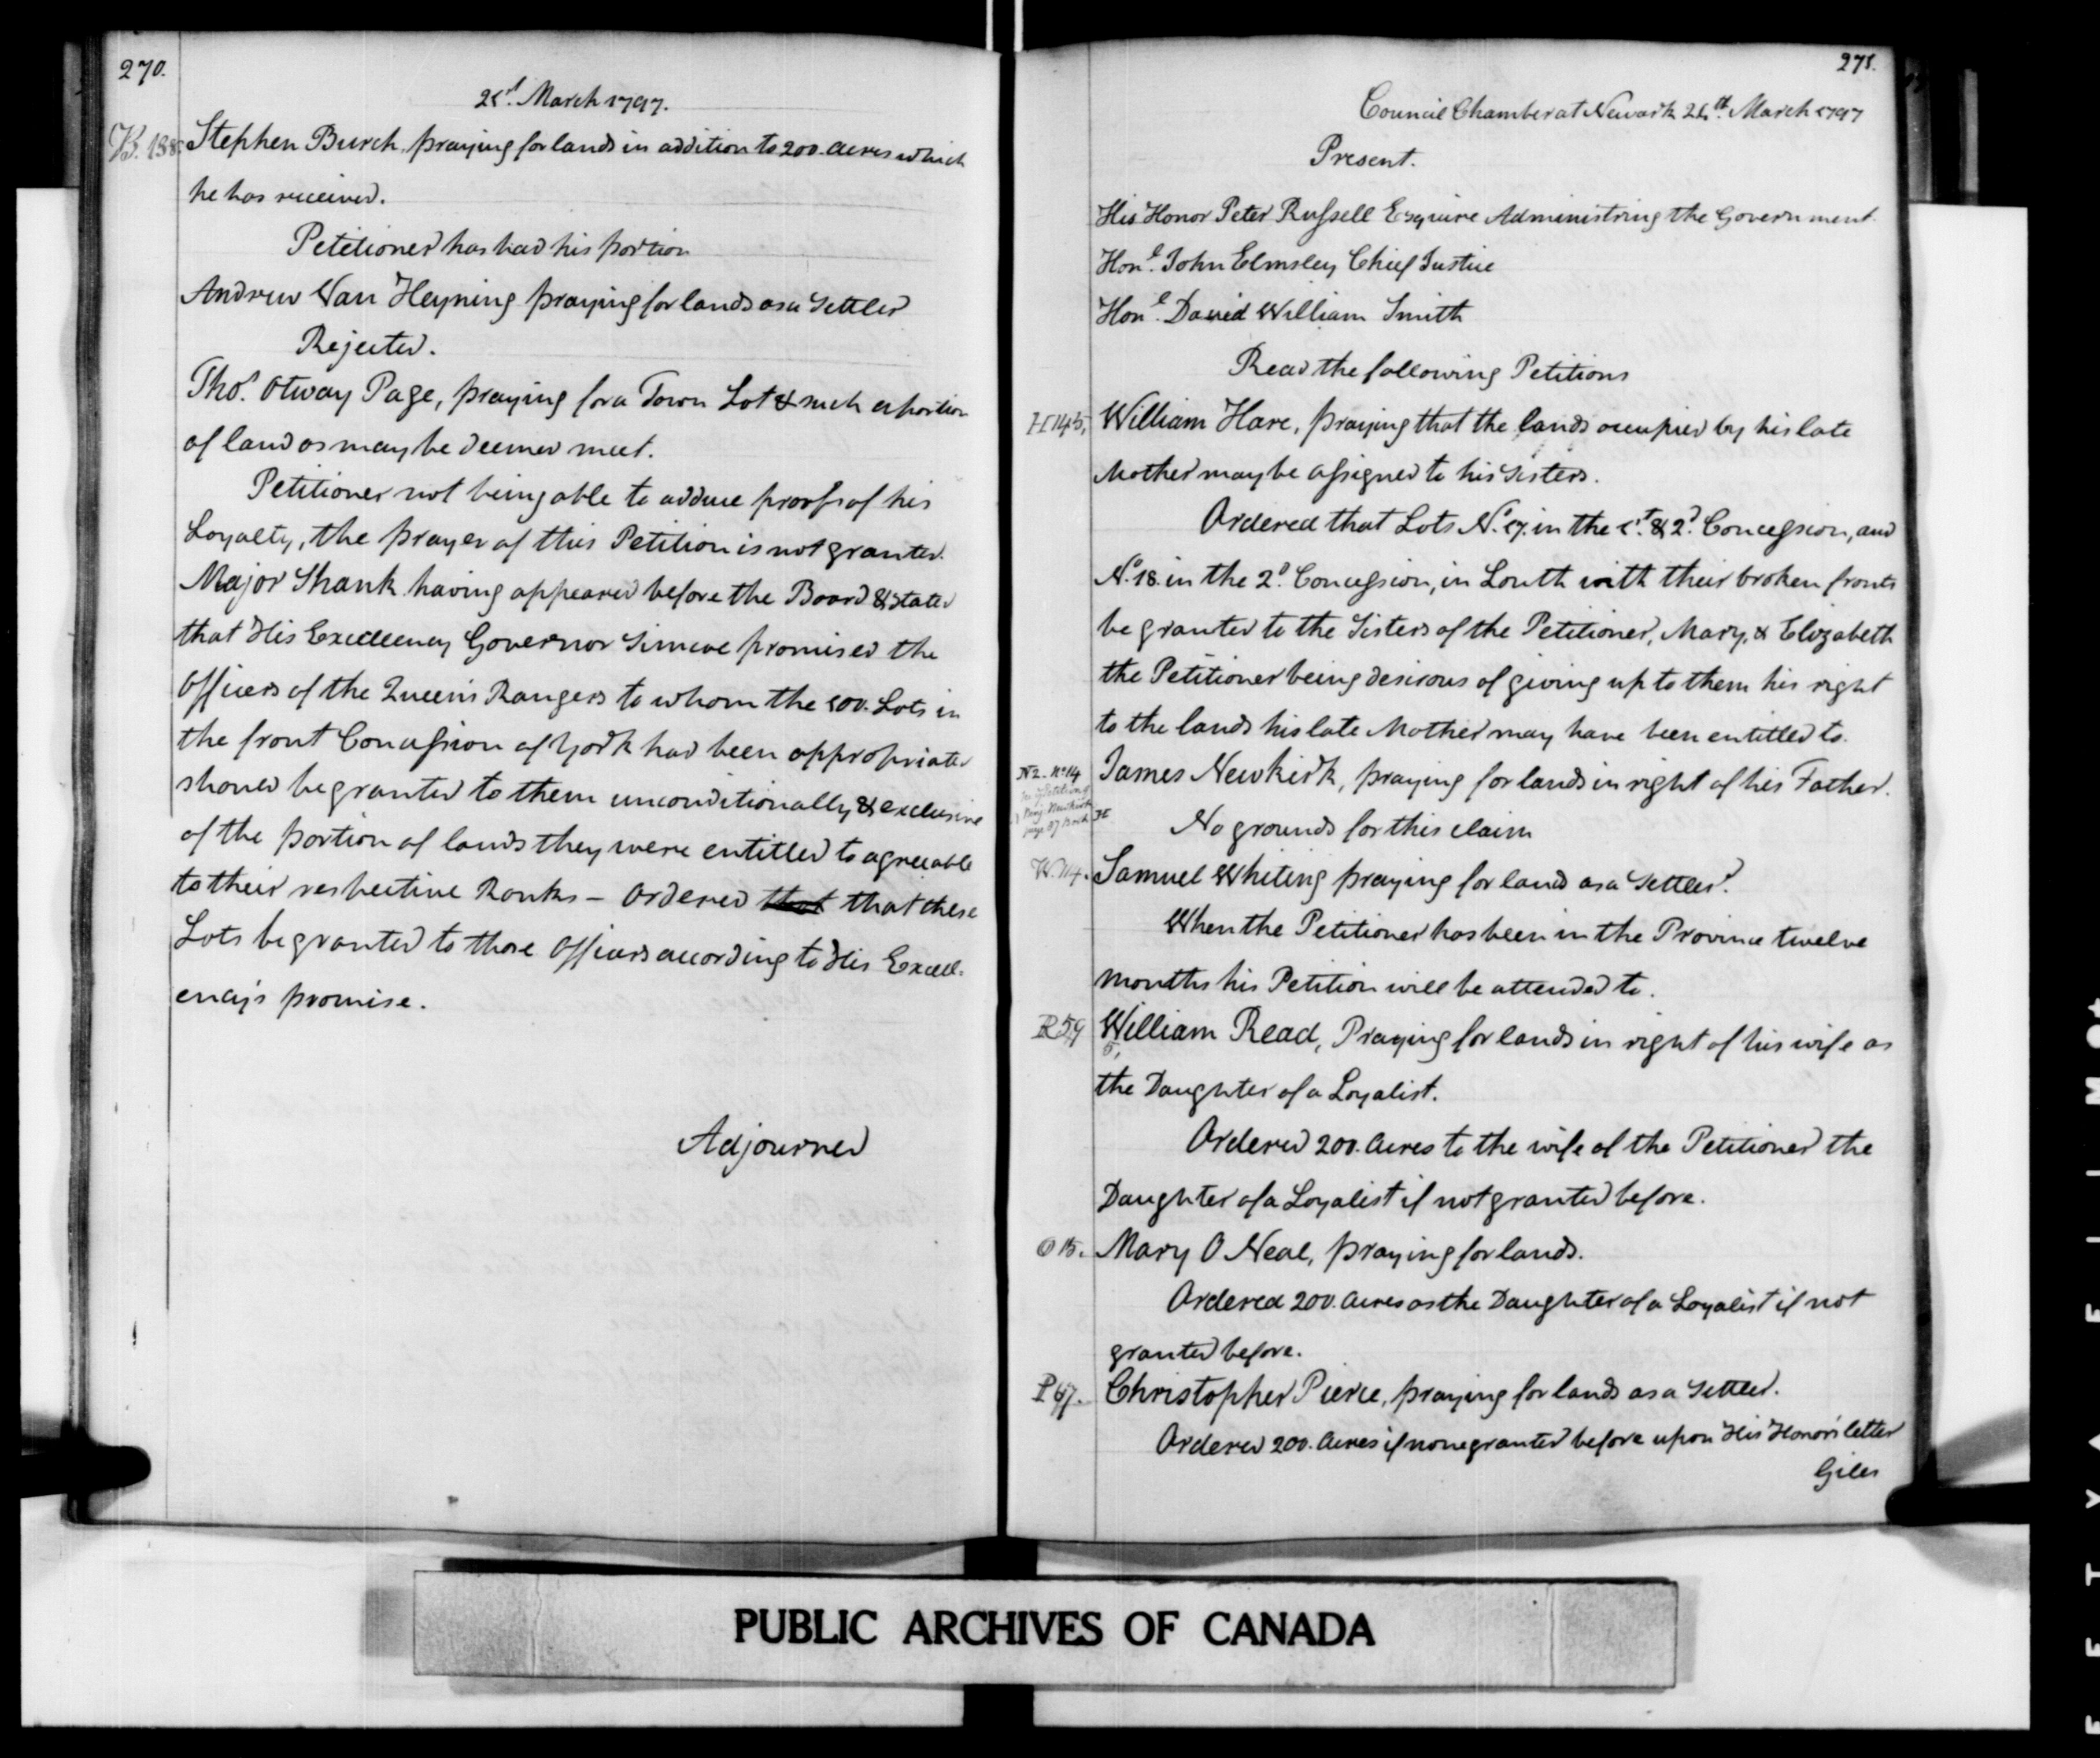 270.
21st. March 1797.
B. 138. Stephen Burch, praying for lands in addition to 200. acres which
he has received.
Petitioner has had his portion
Andrew Van Heyning praying for lands as a Settler
Rejected.
Thos. Otway Page, praying for a Town Lot & such a portion
of land as may be deemed meet.
Petitioner not being able to adduce proofs of his
Loyalty, the prayer of this Petition is not granted.
Major Shank having appeared before the Board & stated
that His Excellency Governor Simcoe promised the
Officers of the Queen's Rangers to whom the 100. Lots in
the front Concession of York had been appropriated
should be granted to them unconditionally & exclusive
of the portion of lands they were entitled to agreeable
to their respective Ranks – Ordered that that these
Lots be granted to those Officers according to His Excell-
ency's promise.
Adjourned
271.
Council Chamber at Newark 24th. March 1797
Present.
His Honor Peter Russell Esquire Administring the Government
Honl. John Elmsley Chief Justice
Honl. David William Smith
Read the following Petitions
H 145, William Hare, praying that the lands occupied by his late
Mother may be assigned to his Sisters.
Ordered that Lots No. 17. in the 1st. & 2d. Concession, and
No. 18. in the 2d. Concession, in Louth with their broken fronts
be granted to the Sisters of the Petitioner, Mary, & Elizabeth
the Petitioner being desirous of giving up to them his right
to the lands his late Mother may have been entitled to.
N 2. No 14
James Newkirk, praying for lands in right of his Father.
No grounds for this claim
W. 114. Samuel Whiting praying for land as a Settler.
When the Petitioner has been in the Province twelve
months his Petition will be attended to.
R 59 William Read, Praying for lands in right of his wife as
the Daughter of a Loyalist.
Ordered 200. Acres to the wife of the Petitioner the
Daughter of a Loyalist if not granted before.
O 15. Mary O Neal, praying for lands.
Ordered 200. Acres as the Daughter of a Loyalist if not
granted before.
P 67. Christopher Pierce, praying for lands as a Settler.
Ordered 200. Acres if none granted before upon His Honor's letter
Giles
PUBLIC ARCHIVES OF CANADA